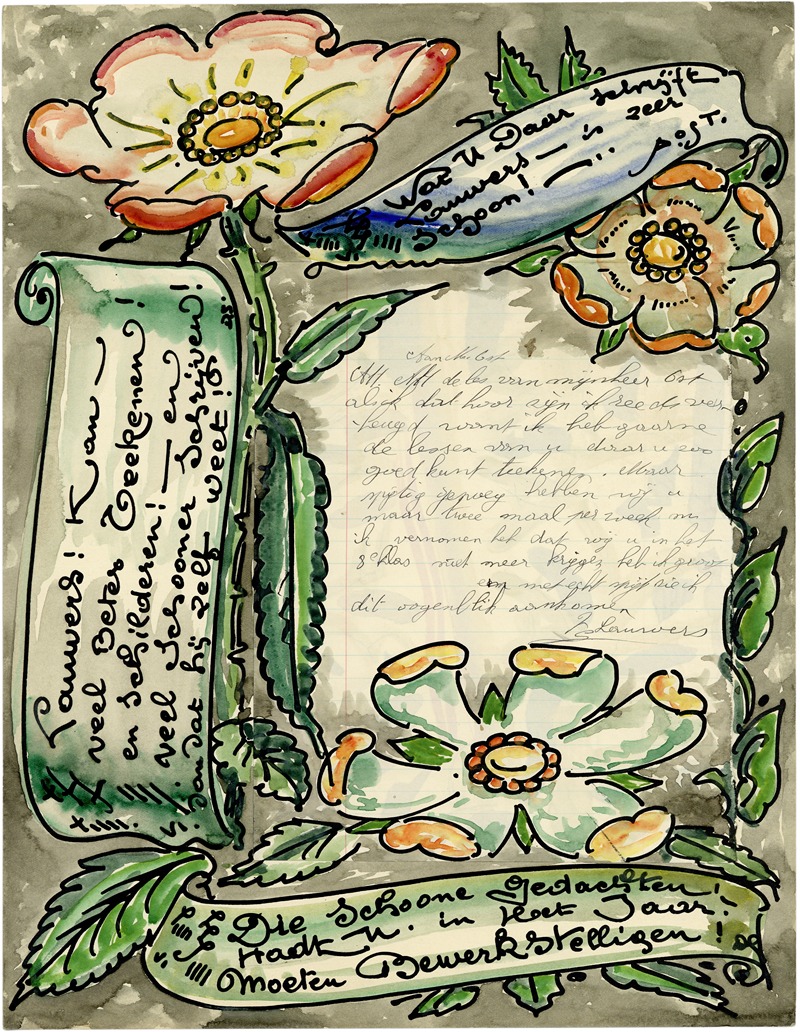 Wat U Daar schrijft
Lauwers — is zeer
schoon! — .. P. OST.
Lauwers! Kan —
veel Beter Teekenen!
en schilderen! — en
veel schooner schrijven!
Dan dat hij zelf weet!
Aan Mr Ost
de les van mijnheer Ost
als ik dat hoor zijn ik reeds ver-
heugd want ik heb gaarne
de lessen van u daar u zoo
goed kunt teekenen. Maar
spijtig genoeg hebben wij u
maar twee maal per week nu
ik vernomen heb dat wij u in het
8e klas niet meer krijgen heb ik groot
en met echt spijt zie ik
dit oogenblik aankomen
Lauwers
Die schoone gedachten!
Hadt U. in Het Jaar!
Moeten Bewerkstelligen!